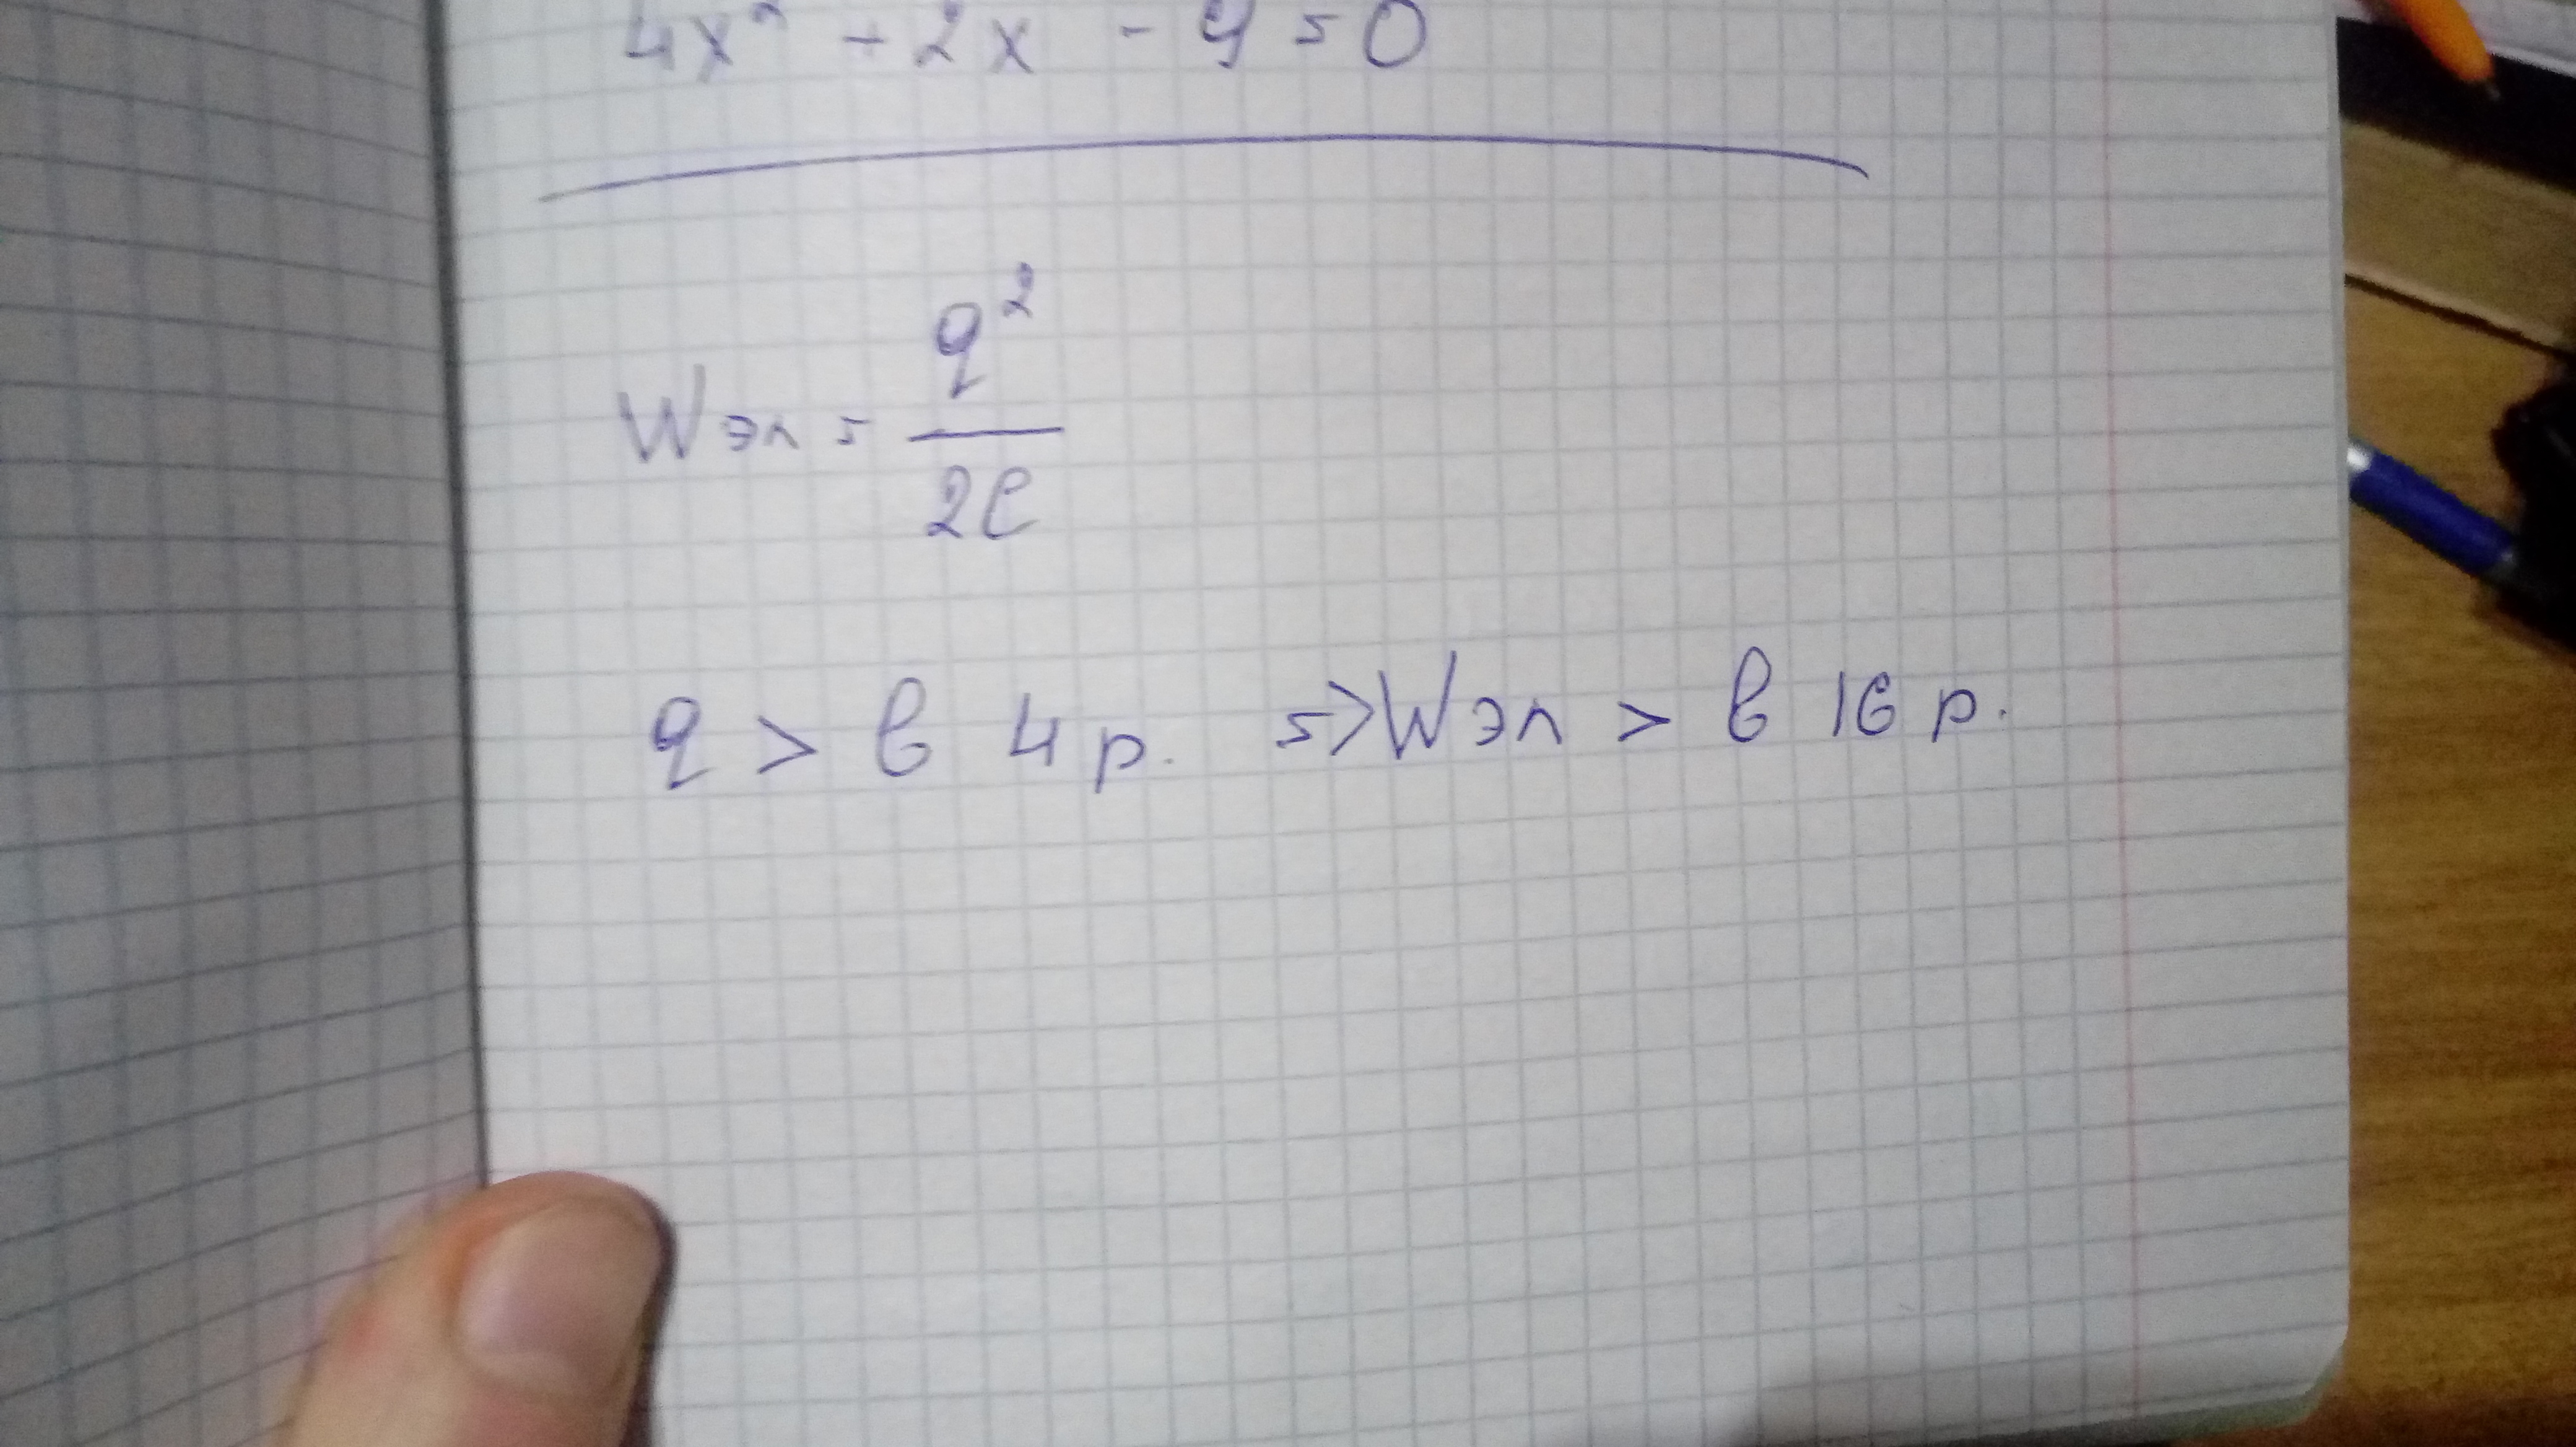 4x² + 2x - 9 = 0
Wэл = q² / 2C
q > в 4 р. => Wэл > в 16 р.